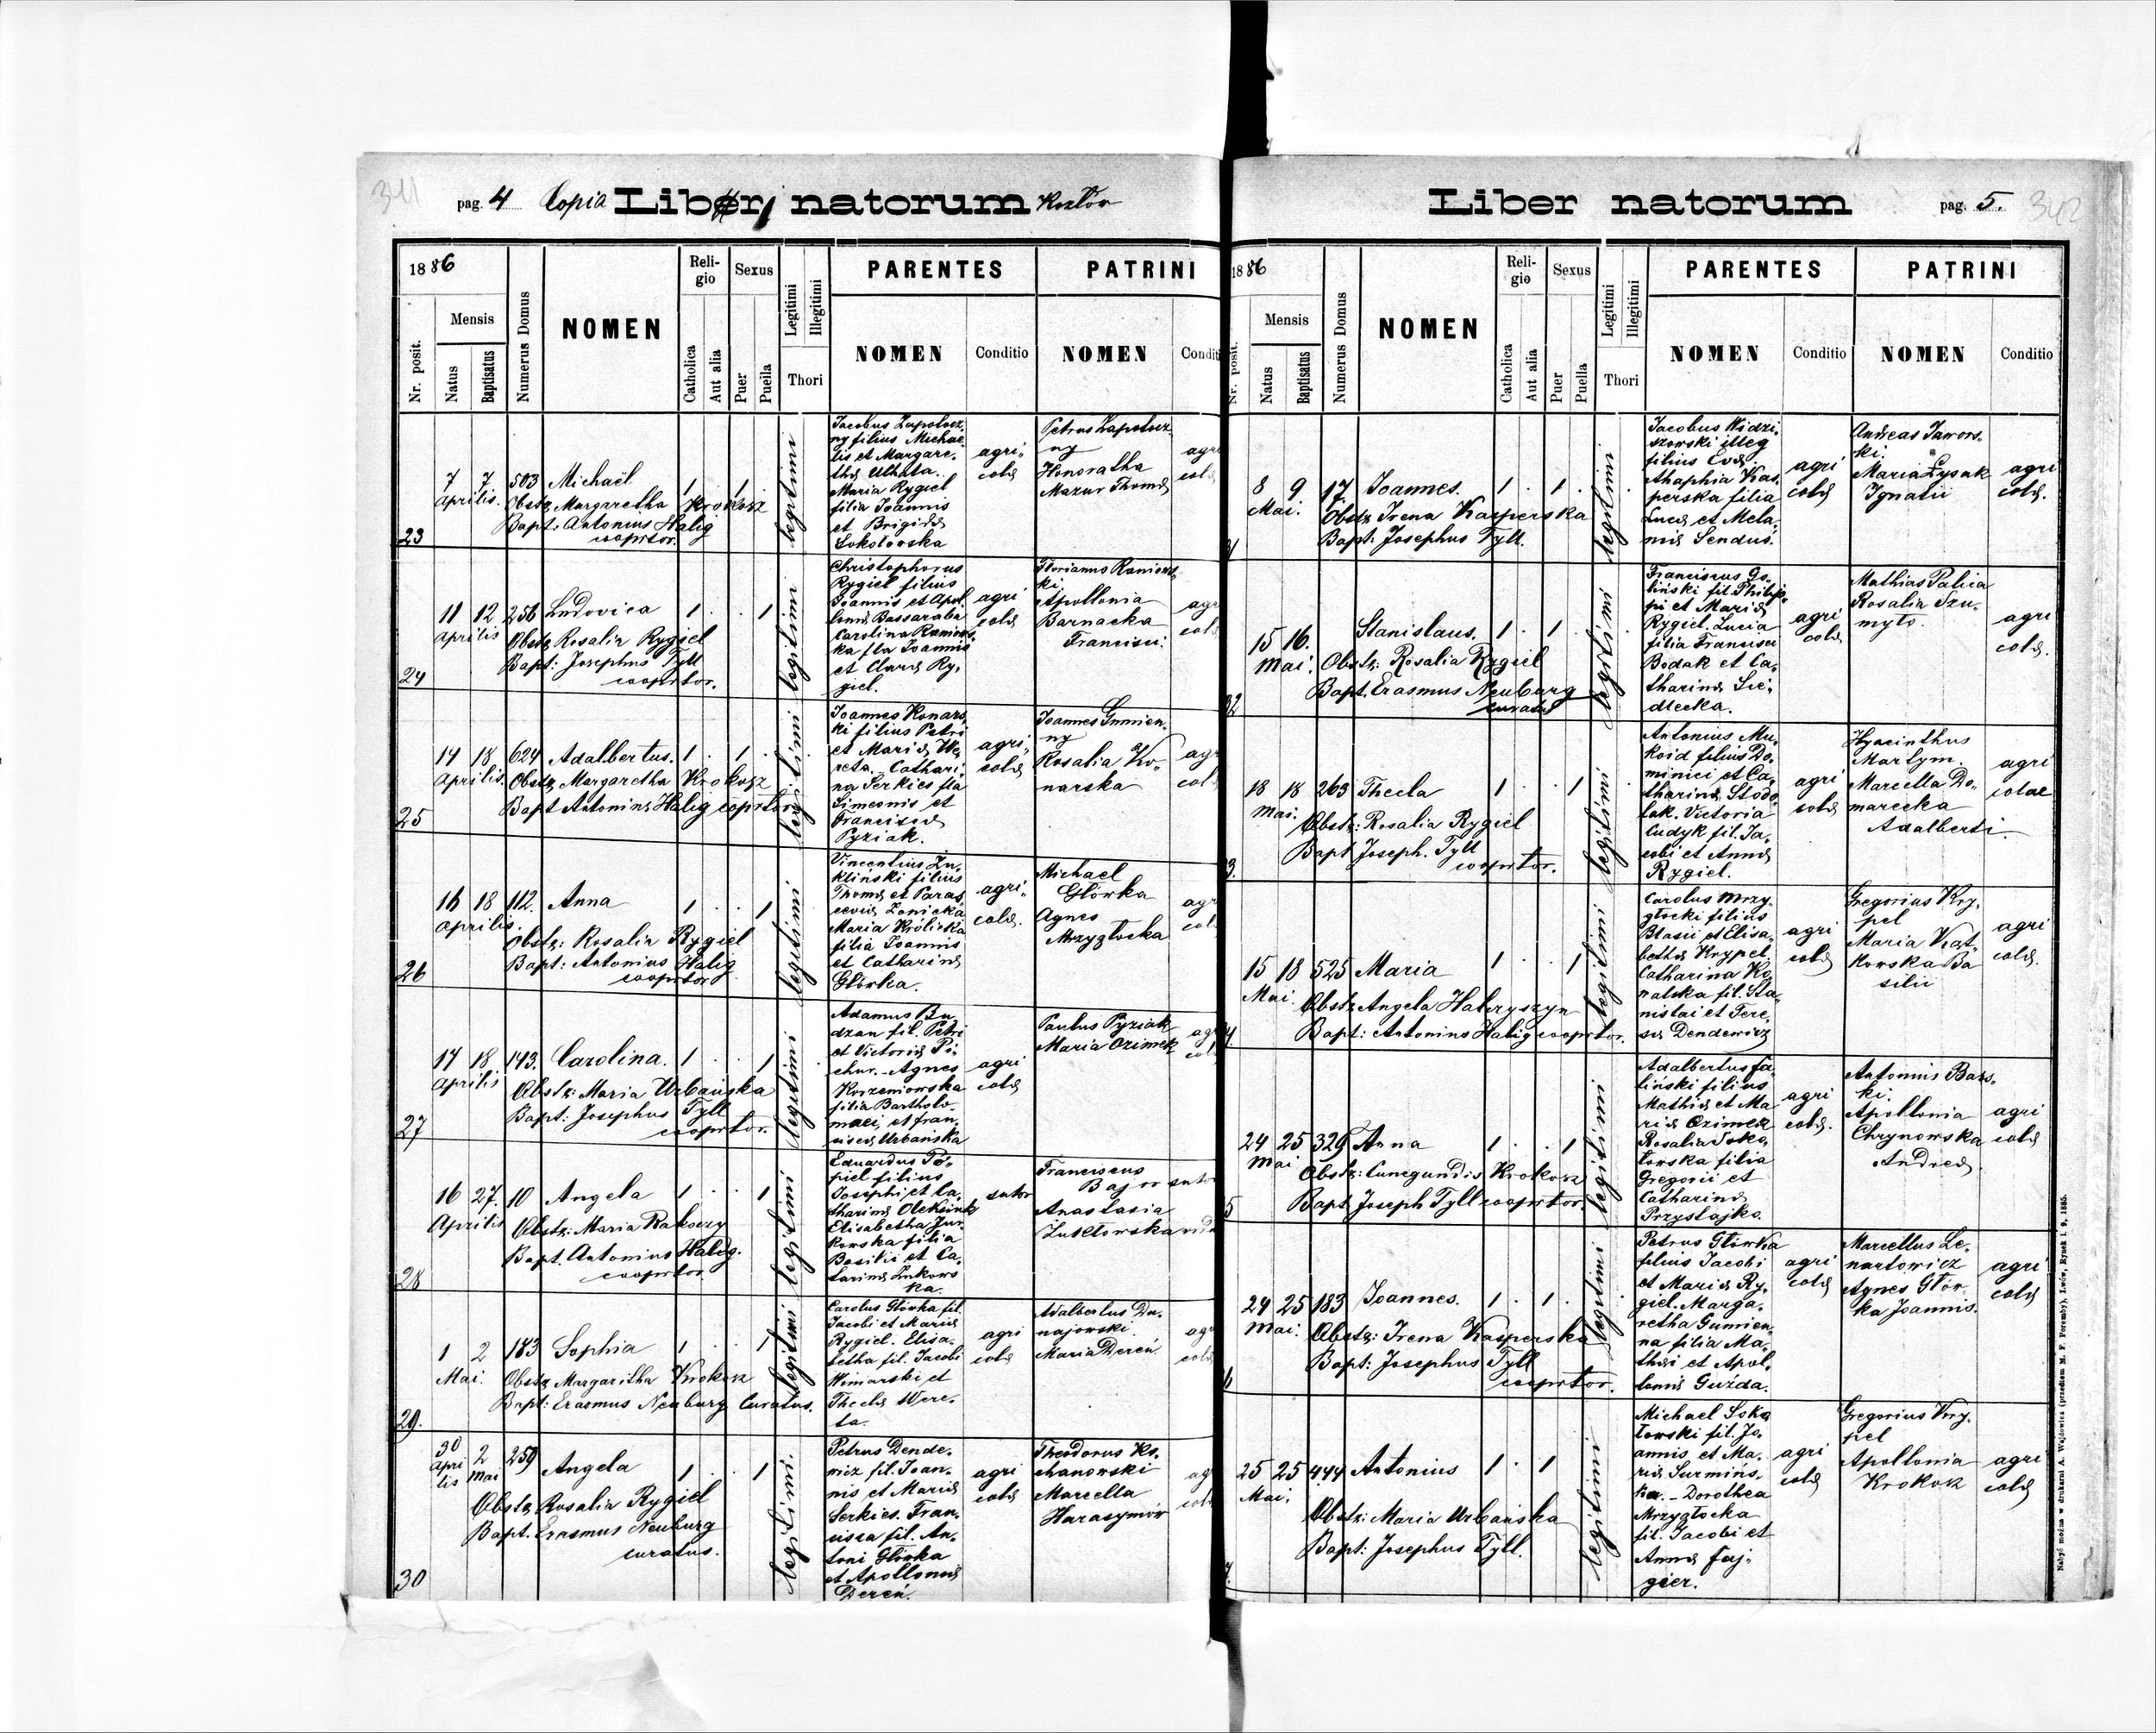 pag. 4 Copia Liber natorum
1886
Nr. posit.
Mensis
Natus
Baptisatus
Numerus Domus
NOMEN
Religio
Catholica
Aut alia
Sexus
Puer
Puella
Legitimi
Illegitimi
Thori
PARENTES
NOMEN
Conditio
PATRINI
NOMEN
Conditi
23
7 7 503 Michaël 1 . 1 .
Aprilis. Obstx Margaretha Krokosz
Bapt: Antonius Halig
cooprtor.
legitimi
Jacobus Zapotocz,
ny filius Michae,
lis et Margare,
thæ Uchata.
Maria Rygiel
filia Joannis
et Brigidæ
Sokołowska
agri,
colæ
Petrus Zapotocz,
ny
Honoratha
Mazur Thomæ
24
11 12 256 Ludovica 1 . . 1
Aprilis Obstx Rosalia Rygiel
Bapt: Josephus Tyll
cooprtor.
legitimi
Christophorus
Rygiel filius
Joannis et Apol,
loniæ Bassaraba
Carolina
fla Joannis
et Claræ Ry,
giel.
agri
colæ
Florianus
ki
Apollonia
Barnacka
Francisci.
25
14 18 624 Adalbertus. 1 . 1 .
Aprilis. Obstx Margaretha Krokosz
Bapt Antonius Halig cooprtor
legitimi
Joannes Konars,
ki filius Petri
et Mariæ We,
reta. Cathari,
na Serkies fla
Simeonis et
Franciscæ
Pyziak.
agri,
colæ
Joannes Gumien,
ny
Rosalia Ko,
narska
26
16 18 112. Anna 1 . . 1
Aprilis. Obstx: Rosalia Rygiel
Bapt: Antonius Halig
cooprtor
legitimi
Vincentius Zu,
kliński filius
Thomæ et Paras,
ceviæ
Maria Królicka
filia Joannis
et Catharinæ
Główka.
agri,
colæ.
Michael
Główka
Agnes
Mrzygłocka
27
17 18 143. Carolina. 1 . . 1
Aprilis Obstx: Maria Urbańska
Bapt: Josephus Tyll
cooprtor.
legitimi
Adamus Bu,
dzan fil. Petri
et Victoriæ Pi,
chur. - Agnes
Korzeniowska
filia Bartholo,
maei, et Fran,
ciscæ Urbańska
agri
colæ
Paulus Pyziak
Maria Ozimek
28
16 27. 10 Angela 1 . . 1
Aprilis Obstx: Maria Rakoczy
Bapt. Antonius Halig.
cooprtor
legitimi
Eduardus Po,
piel filius
Josephi et Ca,
tharinæ
Elisabetha Jur,
kowska filia
Basilii et Ca,
tarinæ Zukows
ka.
sutor
Franciscus
Bajor
Anastasia
29.
1 2 183 Sophia 1 . . 1
Mai. Obstx Margaritha Krokosz
Bapt: Erasmus Neuburg Curatus.
legitimi
Carolus Główka fil.
Jacobi et Mariæ
Rygiel. Elisa,
betha fil. Jacobi
Winiarski et
Theclæ Were,
ta.
agri
colæ
Adalbertus Du,
najowski.
Maria Dereń
30
30 2 259 Angela 1 . . 1
Apri Mai
lis
Obstx Rosalia Rygiel
Bapt. Erasmus Neuburg
curatus.
legitimi.
Petrus Dende,
wicz fil. Joan,
nis et Mariæ
Serkies. Fran,
cisca fil. An,
toni Główka
et Apolloniæ
Dereń.
agri
colæ
Theodorus Ko,
chanowski
Marcella
Harasymów
Liber natorum pag. 5.
1886
Nr. posit.
Mensis
Natus
Baptisatus
Numerus Domus
NOMEN
Religio
Catholica
Aut alia
Sexus
Puer
Puella
Legitimi
Illegitimi
Thori
PARENTES
NOMEN
Conditio
PATRINI
NOMEN
Conditio
8 9 17. Joannes. 1 . 1 .
Mai. Obstx Irena Kasperska
Bapt: Josephus Tyll.
legitimi
Jacobus Widzi,
szowski illeg
filius Evæ
Ahaphia Kas,
perska filia
Lucæ et Mela,
niæ Senduś.
agri
colæ
Andreas Jawors,
ki.
Maria Łysak
Ignatii
agri
colæ.
15 16. Stanislaus. 1 . 1 .
Mai. Obstx: Rosalia Rygiel
Bapt. Erasmus Neuburg
curatus
legitimi
Franciscus Go,
liński fil Philip,
pi et Mariæ
Rygiel. Lucia
filia Francisci
Bodak et Ca,
tharinæ Sie,
dlecka.
agri
colæ
Mathias Palica
Rosalia Szu,
myło.
agri
colæ.
18 18 263 Thecla 1 . . 1
Mai. Obstx: Rosalia Rygiel
Bapt Joseph. Tyll
cooprtor.
legitimi
Antonius Mu,
koid filius Do,
minici et Ca,
tharinæ Stodo,
lak. Victoria
Ludyk fil. Ja,
cobi et Annæ
Rygiel.
agri
colæ
Hyacinthus
Martym.
Marcella Do,
marecka
Adalberti.
agri
colae
15 18 525 Maria 1 . . 1
Mai. Obstx Angela Halczyszyn
Bapt: Antonius Halig cooprtor.
legitimi
Carolus Mrzy,
głocki filius
Blasii et Elisa,
bethæ Krypel.
Catharina Ko,
walska fil. Sta,
nislai et Tere,
siæ Dendewicz
agri
colæ
Gregorius Kry,
pel
Maria Kwat,
kowska Ba
silii
agri
colæ.
24 25 329 Anna 1 . . 1
Mai Obstx: Cunegundis Krokosz
Bapt. Joseph Tyll cooprtor.
legitimi
Adalbertus Fa,
liński filius
Mathiæ et Ma
riæ Ozimek
Rosalia Soko,
łowska filia
Gregorii et
Catharinæ
Przystajko.
agri
colæ.
Antonius Bars,
ki.
Apollonia
Chrynowska
Andreæ.
agri
colæ
24 25 183 Joannes. 1 . 1 .
Mai. Obstx: Irena Kasperska
Bapt: Josephus Tyll
cooprtor.
legitimi
Petrus Główka
filius Jacobi
et Mariæ Ry,
giel. Marga,
retha Gumien,
na filia Ma,
thæi et Apol,
loniæ Guzda.
agri
colæ
Marcellus Le,
nartowicz
Agnes Głów,
ka Joannis.
agri
colæ
25 25 444 Antonius 1 . 1
Mai. Obstx: Maria Urbańska
Bapt: Josephus Tyll.
legitimi
Michael Soko
łowski fil. Jo,
annis et Ma,
riæ Surmińs,
ka. - Dorothea
Mrzygłocka
fil. Jacobi et
Annæ Faj,
gier.
agri
colæ
Gregorius Kry,
pel
Apollonia
Krokosz
agri
colæ